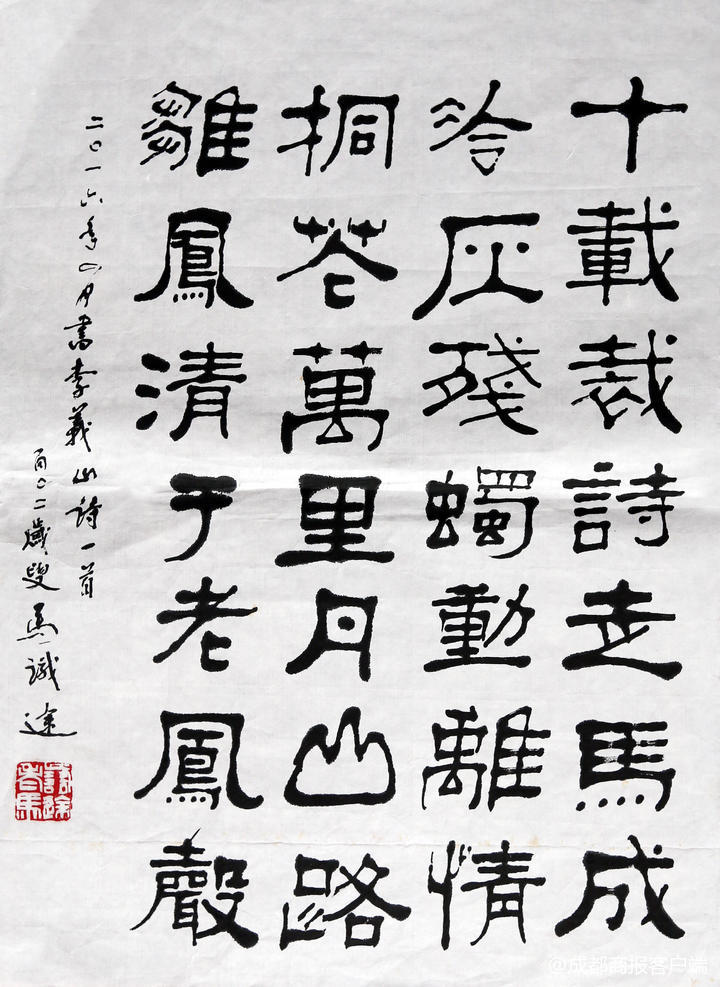 十載裁詩走馬成
冷灰殘蠋動離情
桐花萬里丹山路
雛鳳清于老鳳聲
二〇一六年四月書李義山詩一首
百〇二歲叟馬識途
識途老馬
@成都商报客户端